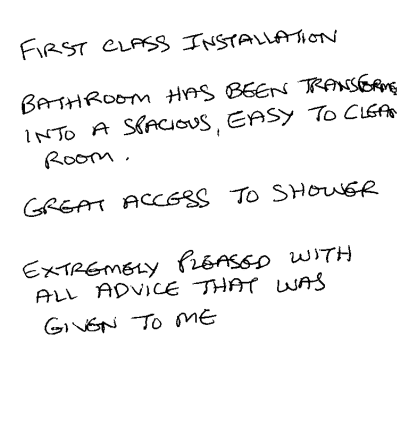 FIRST CLASS INSTALLATION
BATHROOM HAS BEEN TRANSFORMED
INTO A SPACIOUS, EASY TO CLEAN
ROOM.
GREAT ACCESS TO SHOWER
EXTREMELY PLEASED WITH
ALL ADVICE THAT WAS
GIVEN TO ME